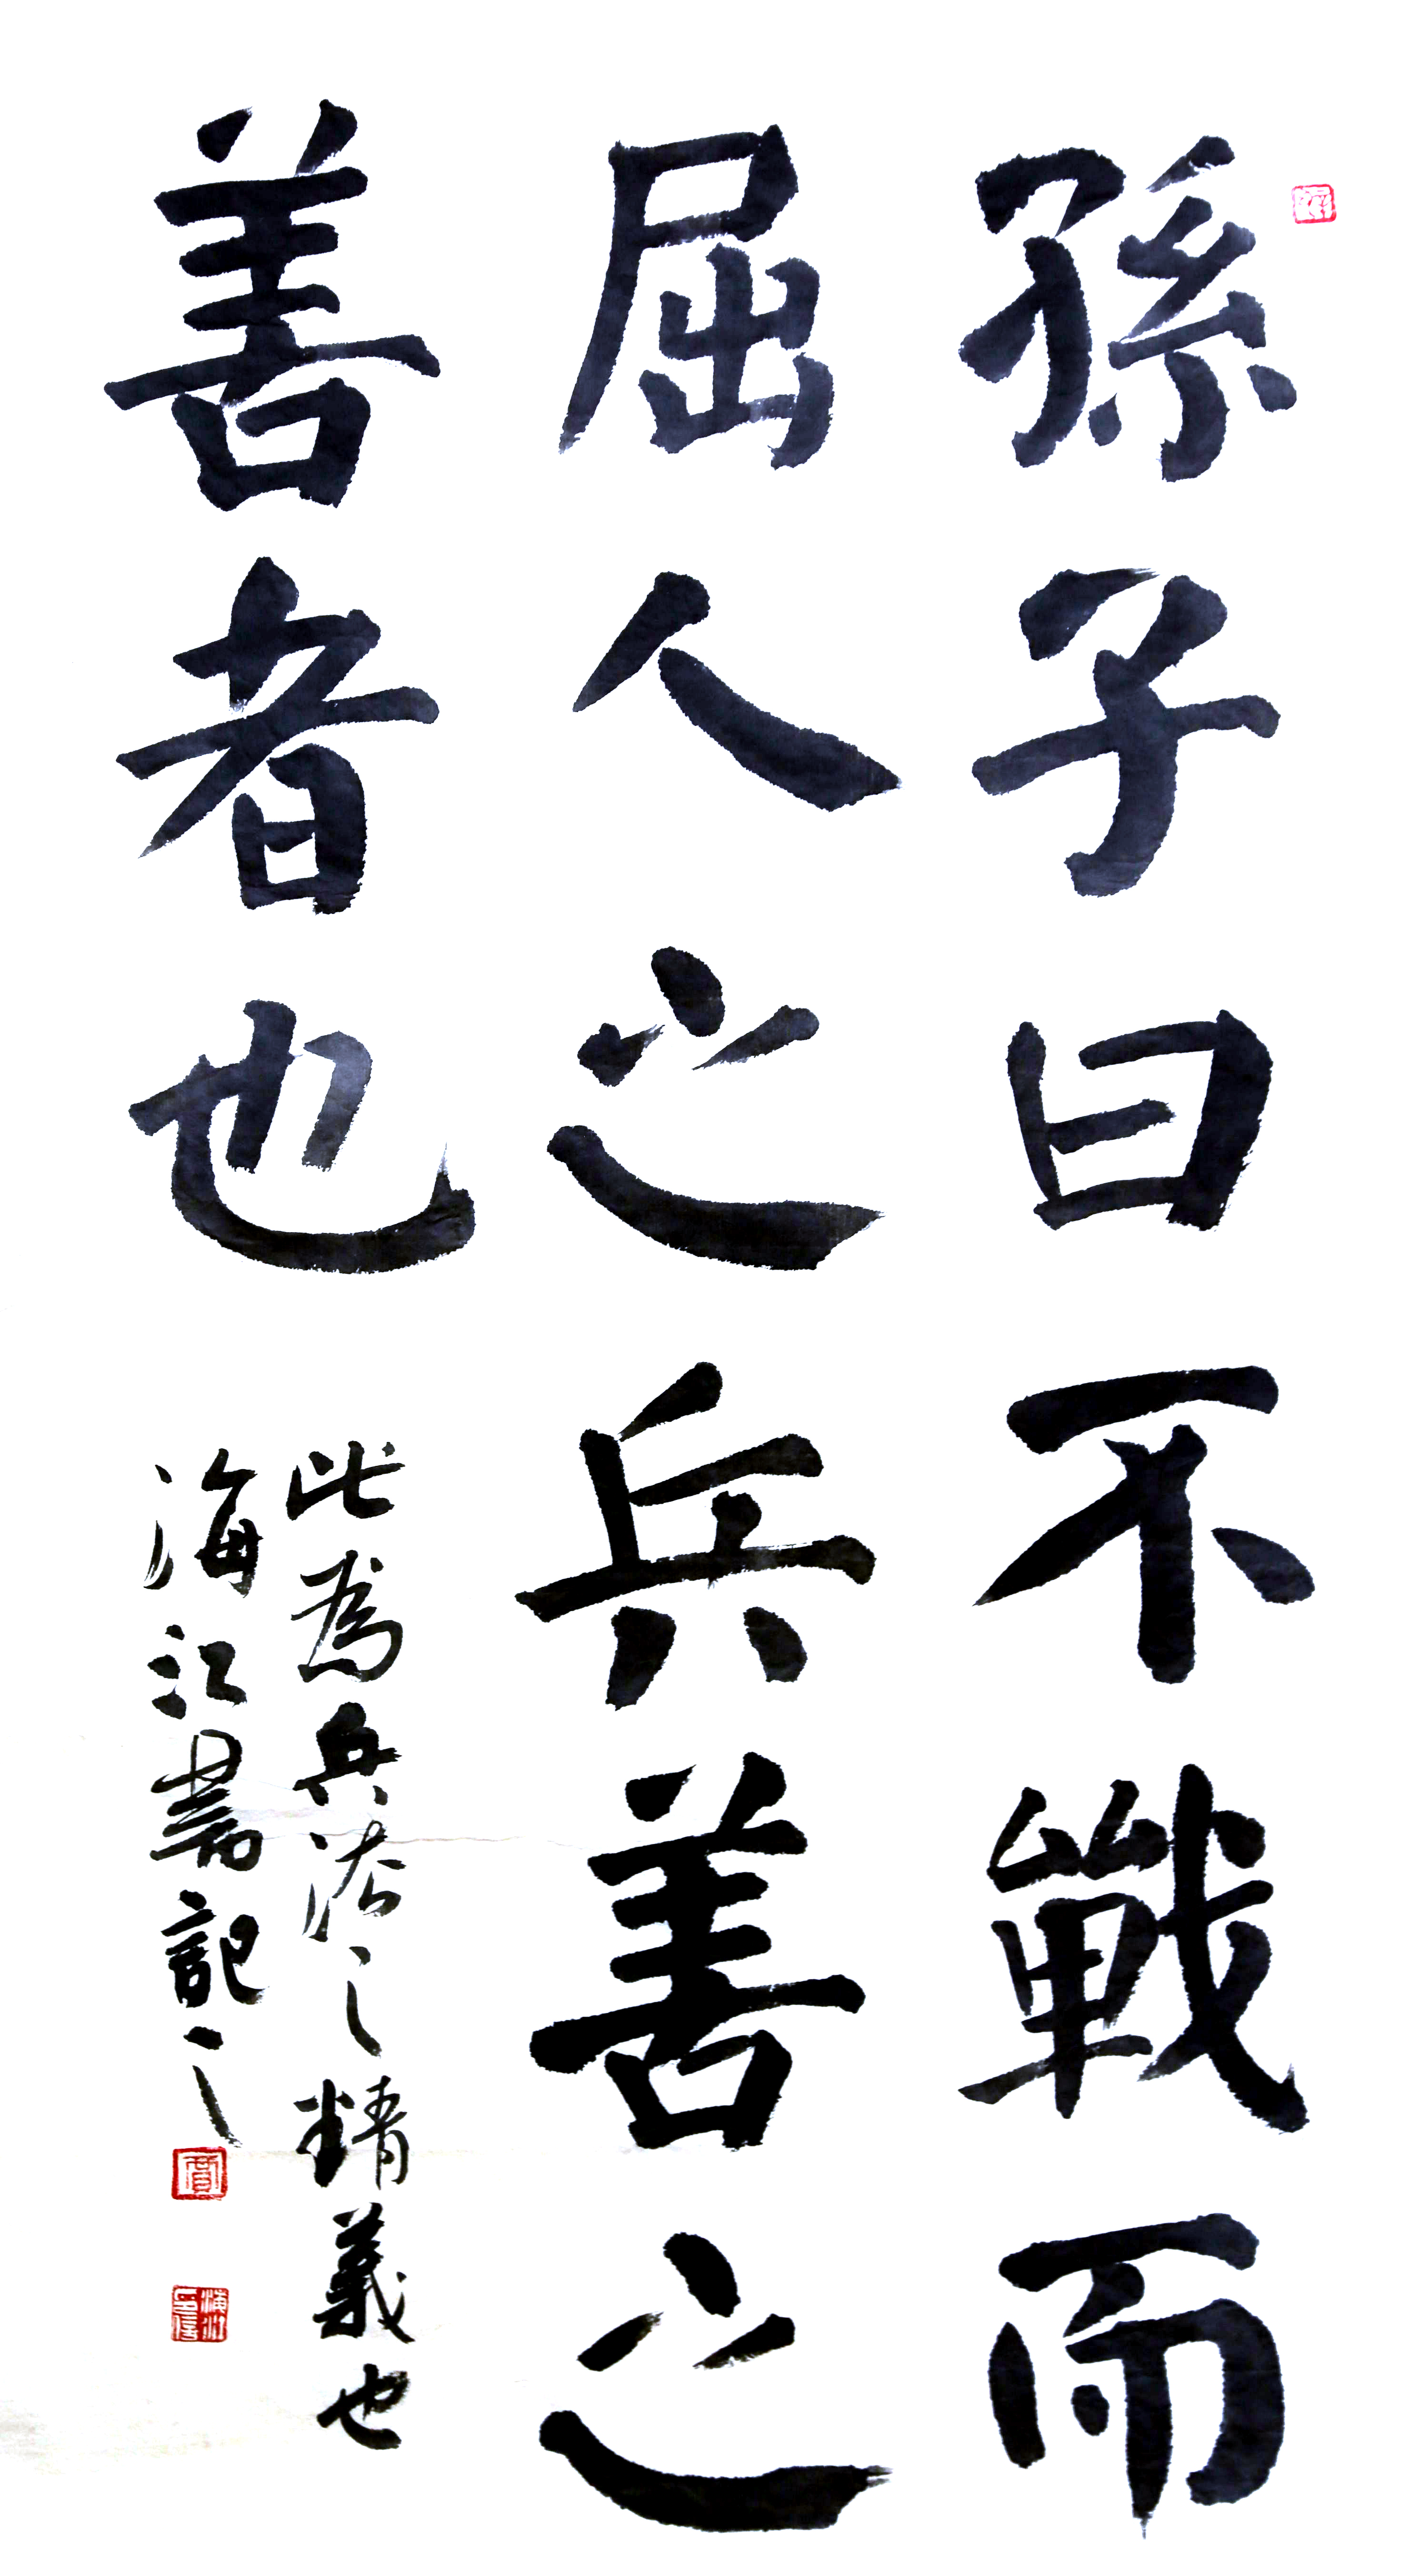 孫子曰不戰而
屈人之兵兵善之
善者也
此為兵法之精義也
海江書記之